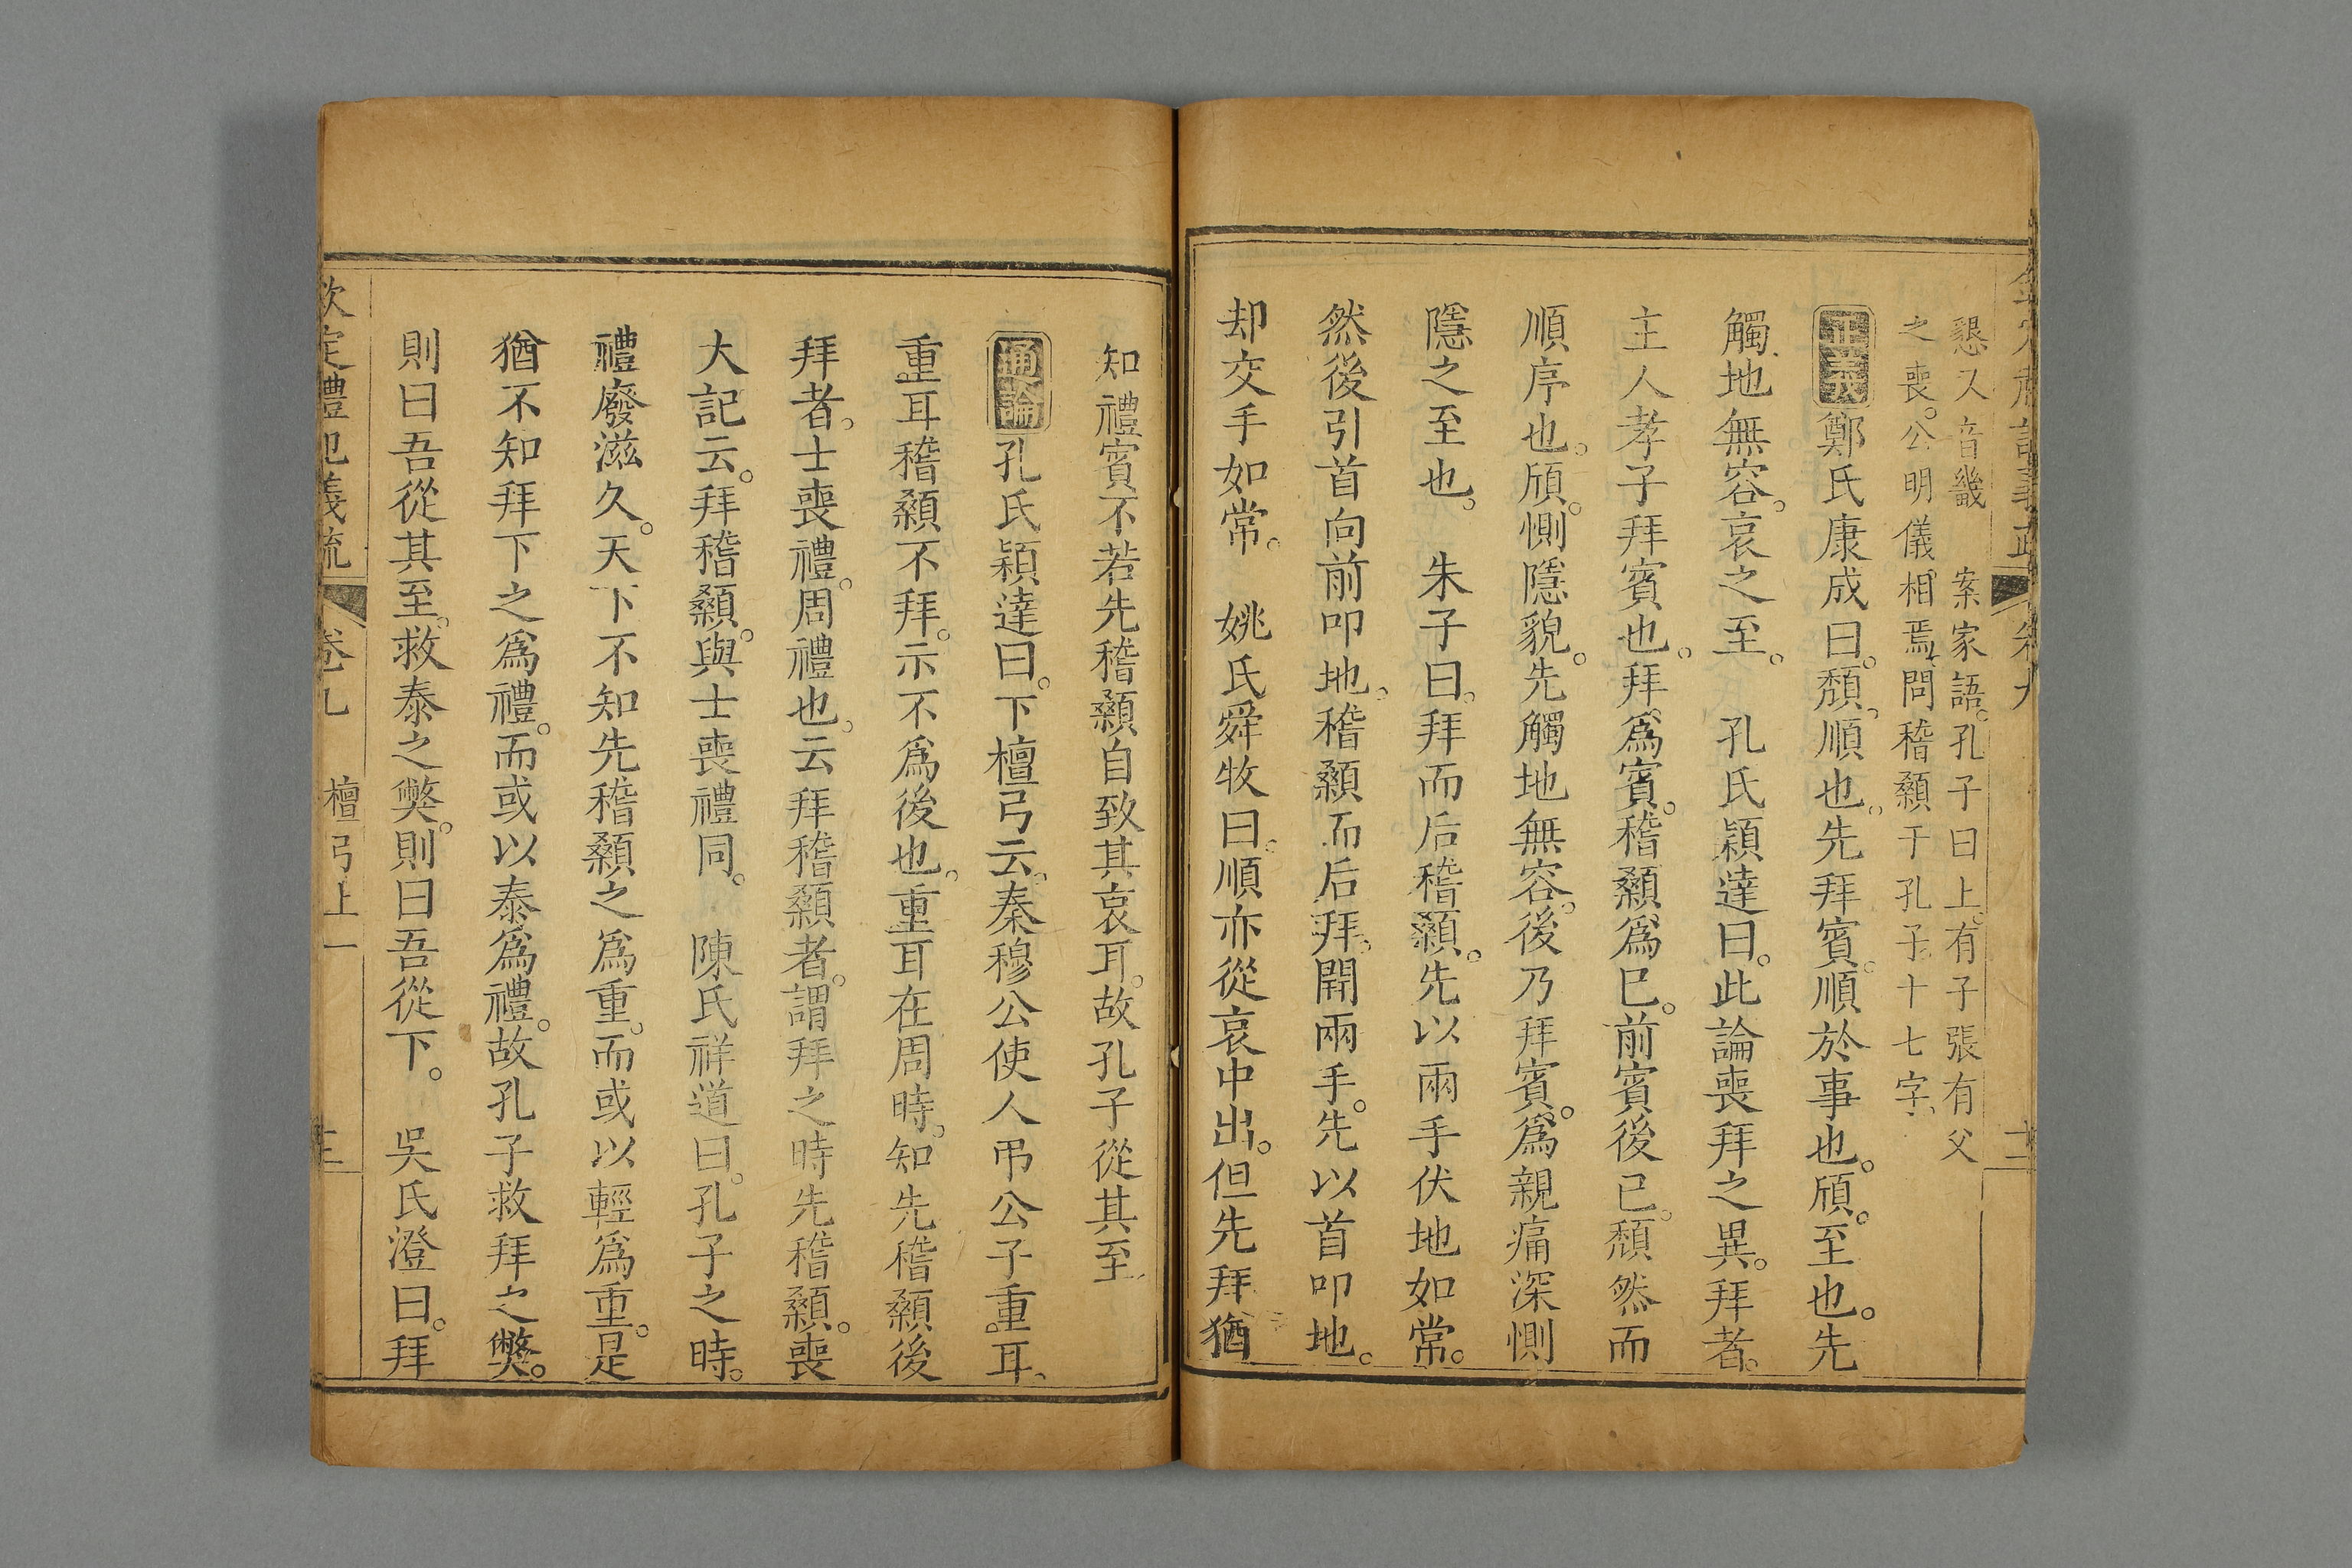 懇又音畿　案家語。孔子曰上。有子張有父
之喪。公明儀相焉、問稽顙于孔子十七字、
正義鄭氏康成曰。頽、順也。先拜賓。順於事也。頎。至也。先
觸地無容。哀之至。　孔氏穎達曰。此論喪拜之異。拜者。
主人孝子拜賓也。拜爲賓。稽顙爲已。前賓後已。頽然而
順序也。頎。惻隱貌。先觸地無容。後乃拜賓。爲親痛深惻
隱之至也。　朱子曰。拜而后稽顙。先以兩手伏地如常。
然後引首向前叩地。稽顙而后拜。開兩手。先以首叩地。
却交手如常。　姚氏舜牧曰。順亦從哀中出。但先拜猶
知禮賓不若先稽顙自致其哀耳。故孔子從其至
通論孔氏穎達曰。下檀弓云。秦穆公使人弔公子重耳、
重耳稽顙不拜。示不爲後也。重耳在周時。知先稽顙後
拜者。士喪禮。周禮也。云拜稽顙者。謂拜之時先稽顙。喪
大記云。拜稽顙。與士喪禮同。　陳氏祥道曰。孔子之時。
禮廢滋久。天下不知先稽顙之爲重。而或以輕爲重。是
猶不知拜下之爲禮。而或以泰爲禮。故孔子救拜之獘。
則曰吾從其至。救泰之獘。則曰吾從下。　吳氏澄曰。拜
欽定禮記義疏　卷九　檀弓上一